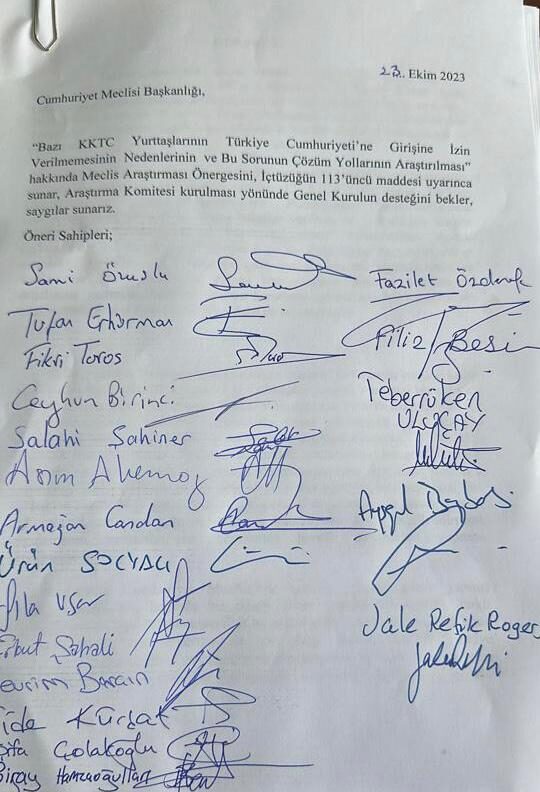 23.. Ekim 2023
Cumhuriyet Meclisi Başkanlığı,
"Bazı KKTC Yurttaşlarının Türkiye Cumhuriyeti'ne Girişine İzin
Verilmemesinin Nedenlerinin ve Bu Sorunun Çözüm Yollarının Araştırılması"
hakkında Meclis Araştırması Önergesini, İçtüzüğün 113'üncü maddesi uyarınca
sunar, Araştırma Komitesi kurulması yönünde Genel Kurulun desteğini bekler,
saygılar sunarız.
Öneri Sahipleri;
Sami Özuslu
Tufan Erhürman
Fikri Toros
Ceyhun Birinci
Salahi Şahiner
Asım
Armağan Candan
Ürün SOLYALI
Şahali
Barçın
Kürşat
Çolakoğlu
Biray Hamzaoğulları
Fazilet
Filiz Besim
Teberrüken
ULUÇAY
Jale Refik Rogers